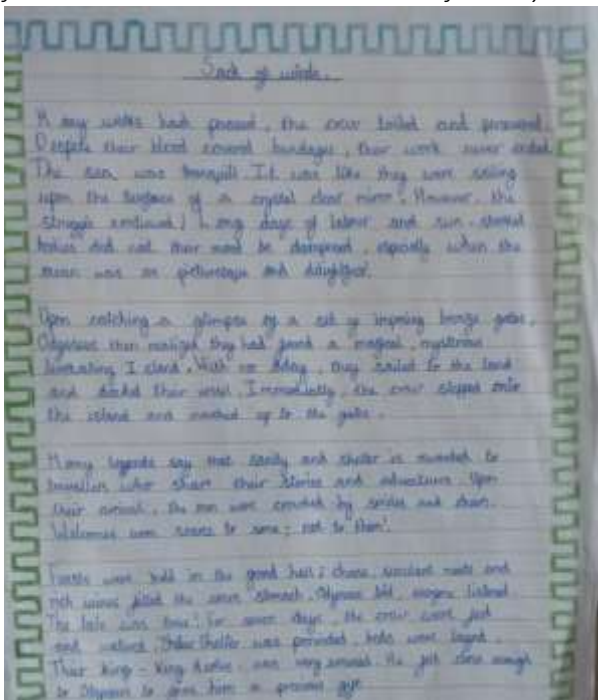 Sack of winds.
Many weeks had passed, the crew toiled and persevered.
Despite their blood covered bandages, their work never ended.
The sea was tranquil. It was like they were sailing
upon the surface of a crystal clear mirror. However, the
struggle endured; long days of labour and sun-
bodies did not their mood be dampened, especially when the
ocean was so picturesque and
Upon catching a glimpse of a set of imposing bronze gates,
Odysseus then realized they had found a magical, mysterious
Island. With no delay, they sailed to the land
and docked their vessel. Immediately, the crew stepped onto
the island and marched up to the gates.
Many legends say that and shelter is awarded to
travellers who share their stories and adventures. Upon
their arrival, the men were by smiles and cheers.
Welcomes were to some; not to them!
Feasts were held in the great hall; cheese, succulent meats and
rich wines filled the stomach. told, listened
The tale was For seven days, the crew were fed
and Shelter was provided, beds were
Their King - King was very The felt close enough
to Odysseus to give him a gift